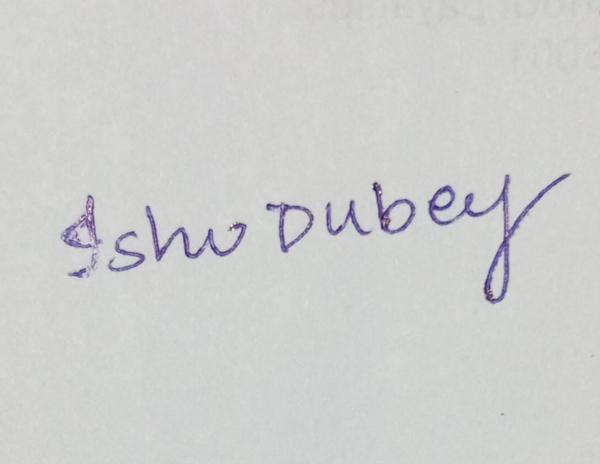 Ishu Dubey